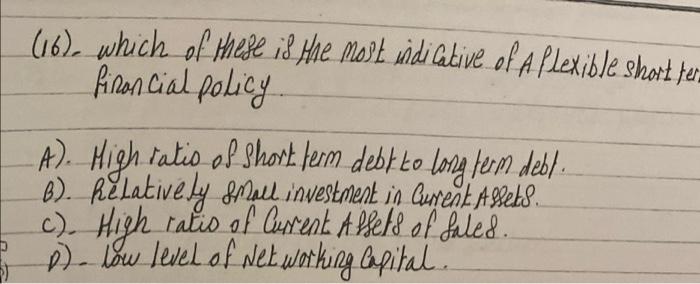 (16)- which of these is the most indicative of A flexible short ter
financial policy.
A). High ratio of short term debt to long term debt.
B). Relatively small investment in Current Assets.
C)- High ratio of Current Assets of Sales.
D)- Low level of Net working Capital.